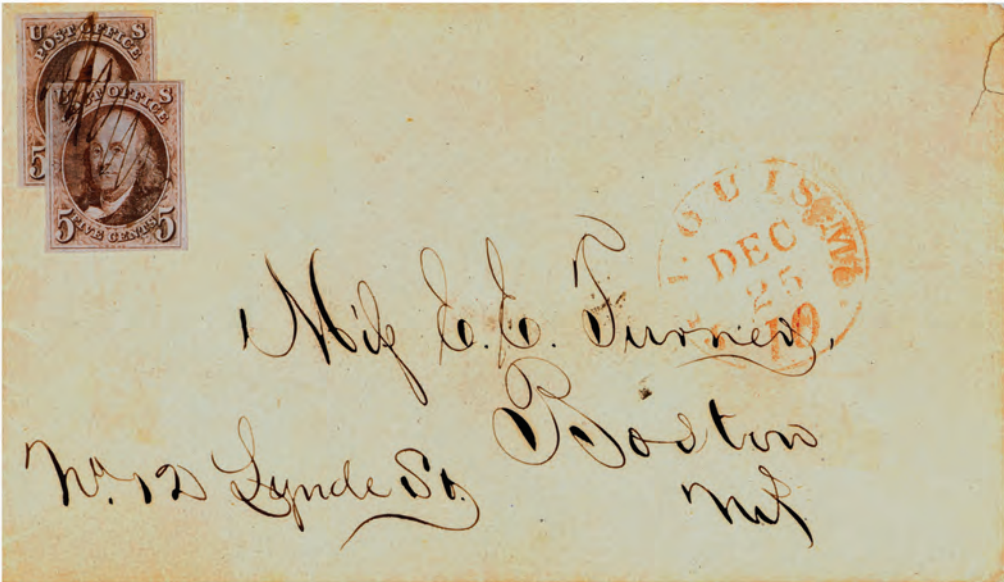 U S
POST OFFICE
5
U S
POST OFFICE
5 FIVE CENTS 5
LOUIS Mo.
DEC
25
10
Miss E. E. Turner,
Boston
No. 12 Lynde St.
Ms